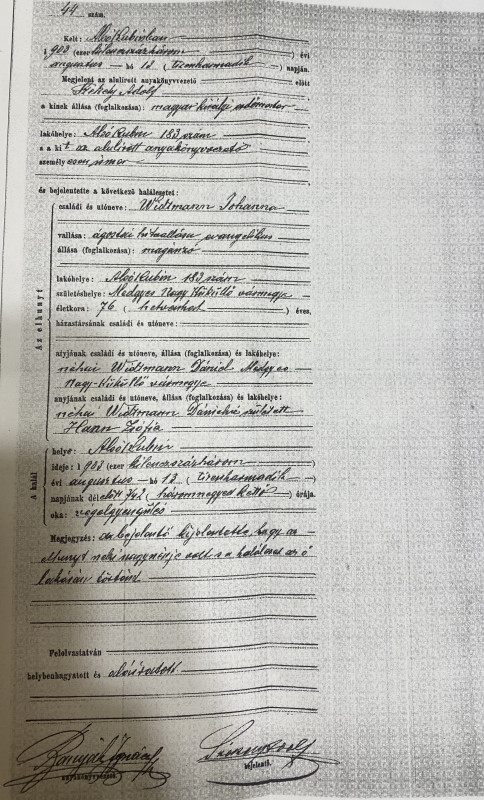 44 szám.
Kelt: Alsó Kubinban
1903 (ezer kilenczszázhárom) évi
augusztus hó 13 (tizenharmadik) napján.
Megjelent az alulirott anyakönyvvezető előtt
Adolf
a kinek állása (foglalkozása): magyar királyi
lakóhelye: Alsó Kubin 183 szám
s a kit az alulirott anyakönyvvezető
személyesen ismer
és bejelentette a következő halálesetet:
Az elhunyt
családi és utóneve: Widtmann Johanna
vallása: ágostai hitvallású evangelikus
állása (foglalkozása): magánzó
lakóhelye: Alsó Kubin 183 szám
születéshelye: Medgyes Nagy Küküllő vármegye
életkora: 76 (hetvenhat) éves,
házastársának családi és utóneve:
atyjának családi és utóneve, állása (foglalkozása) és lakóhelye:
néhai Widtmann Dániel Medgyes
Nagy-Küküllő vármegye
anyjának családi és utóneve, állása (foglalkozása) és lakóhelye:
néhai Widtmann Dánielné született
Hann Zsófia
A halál
helye: Alsó Kubin
ideje: 1903 (ezer kilenczszázhárom)
évi augusztus hó 13 (tizenharmadik)
napjának délelőtt 3/4 2 (háromnegyed kettő) órája.
oka: végelgyengülés
Megjegyzés: a bejelentő kijelentette, hogy az
elhunyt neki nagynénje volt s a haláleset az ő
lakásán történt
Felolvastatván
helybenhagyatott és aláiratott
anyakönyvvezető.
bejelentő.